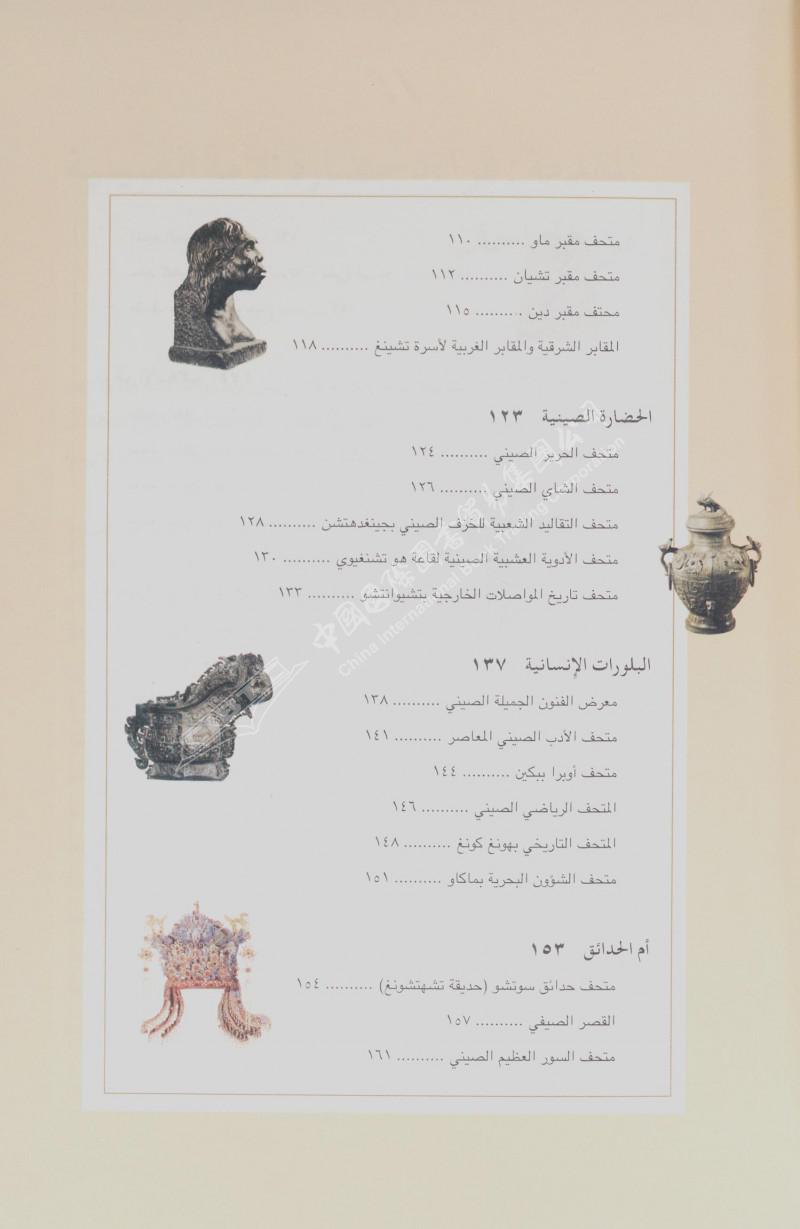 متحف مقبر ماو .......... ١١٠
متحف مقبر تشيان .......... ١١٢
محتف مقبر دين .......... ١١٥
المقابر الشرقية والمقابر الغربية لأسرة تشينغ .......... ١١٨
الحضارة الصينية ١٢٣
متحف الحرير الصيني .......... ١٢٤
متحف الشاي الصيني .......... ١٢٦
متحف التقاليد الشعبية للخزف الصيني بجينغدهتشن .......... ١٢٨
متحف الأدوية العشبية الصينية لقاعة هو تشنغيوي .......... ١٣٠
متحف تاريخ المواصلات الخارجية بتشيوانتشو .......... ١٣٣
البلورات الإنسانية ١٣٧
معرض الفنون الجميلة الصيني .......... ١٣٨
متحف الأدب الصيني المعاصر .......... ١٤١
متحف أوبرا ببكين .......... ١٤٤
المتحف الرياضي الصيني .......... ١٤٦
المتحف التاريخي بهونغ كونغ .......... ١٤٨
متحف الشؤون البحرية بماكاو .......... ١٥١
أم الحدائق ١٥٣
متحف حدائق سوتشو (حديقة تشهتشونغ) .......... ١٥٤
القصر الصيفي .......... ١٥٧
متحف السور العظيم الصيني .......... ١٦١
中国国际图书贸易集团公司
China International Book Trading Corporation